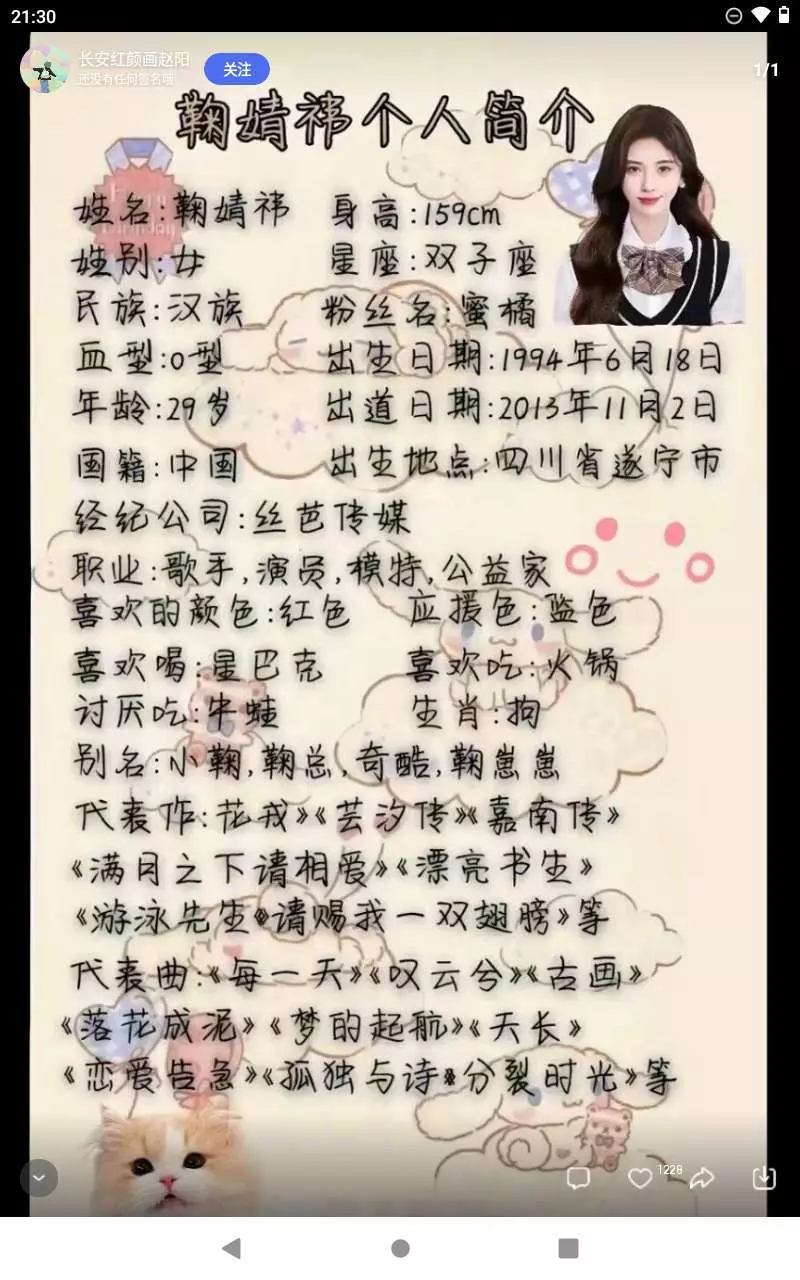 21:30
长安红颜画赵阳
还没有任何签名哦
关注
1/1
鞠婧祎个人简介
姓名:鞠婧祎 身高:159cm
姓别:女 星座:双子座
民族:汉族 粉丝名:蜜橘
血型:o型 出生日期:1994年6月18日
年龄:29岁 出道日期:2013年11月2日
国籍:中国 出生地点:四川省遂宁市
经纪公司:丝芭传媒
职业:歌手,演员,模特,公益家
喜欢的颜色:红色 应援色:蓝色
喜欢喝:星巴克 喜欢吃:火锅
讨厌吃:牛蛙 生肖:狗
别名:小鞠,鞠总,奇酷,鞠崽崽
代表作:花戎》《芸汐传》《嘉南传》
《满月之下请相爱》《漂亮书生》
《游泳先生》《请赐我一双翅膀》等
代表曲:《每一天》《叹云兮》《古画》
《落花成泥》《梦的起航》《天长》
《恋爱告急》《孤独与诗》《分裂时光》等
1226